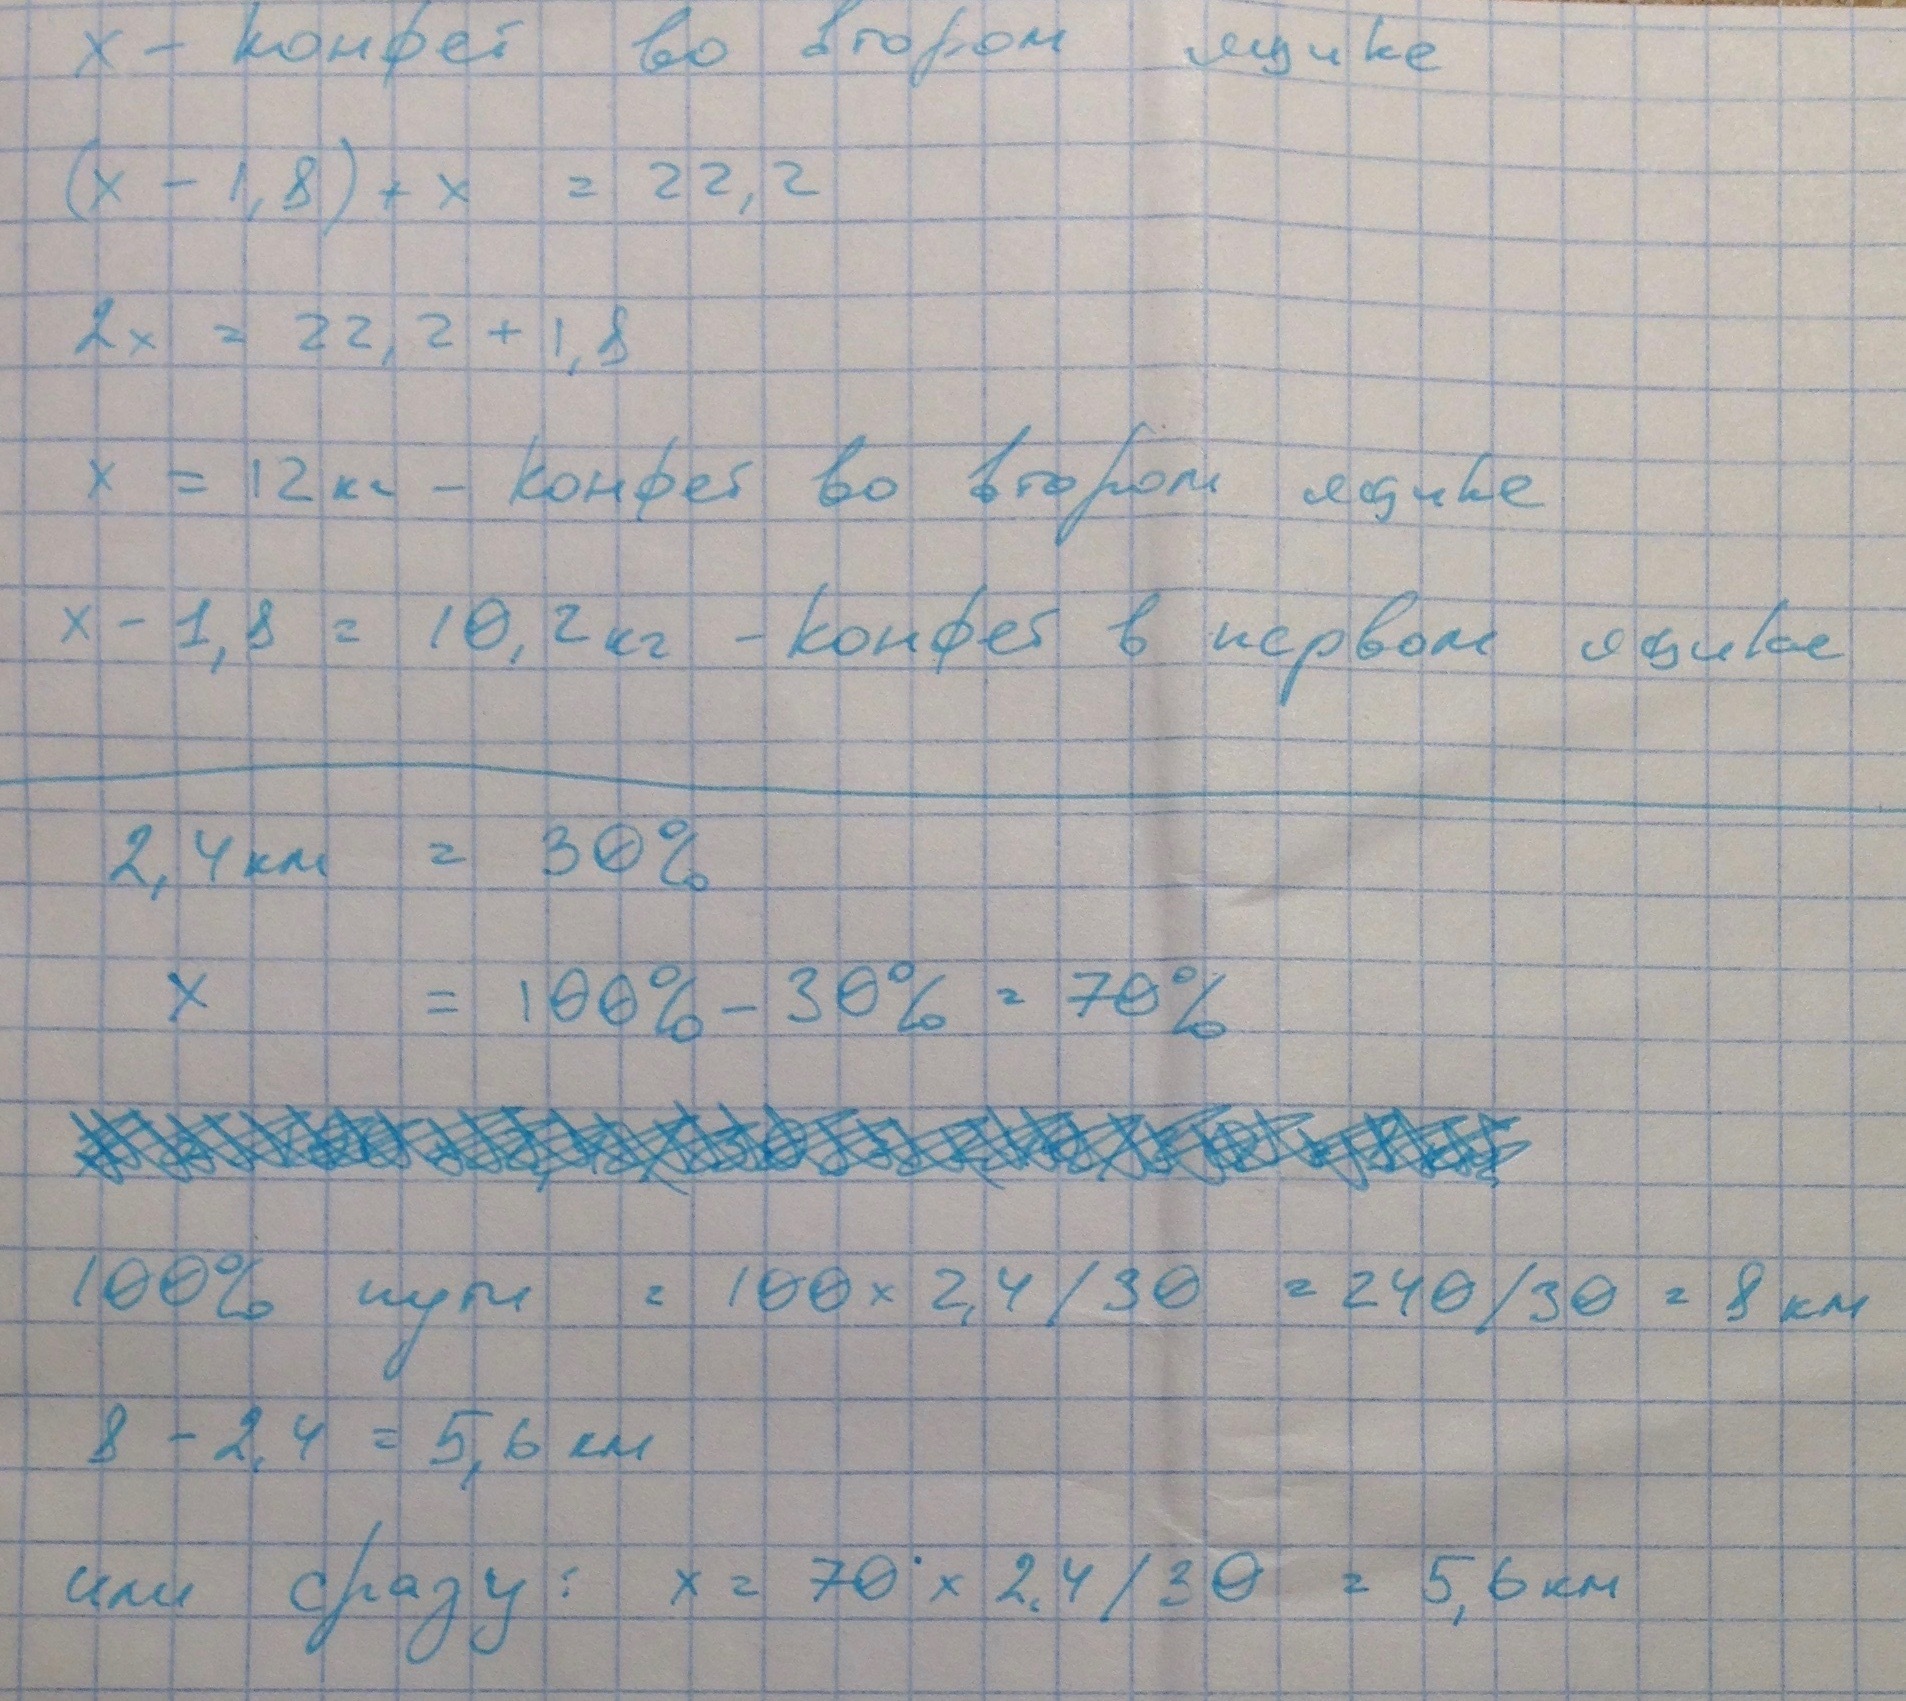 x - конфет во втором ящике
(x - 1,8) + x = 22,2
2x = 22,2 + 1,8
x = 12 кг - конфет во втором ящике
x - 1,8 = 10,2 кг - конфет в первом ящике
2,4 км = 30%
x = 100% - 30% = 70%
100% пути = 100 × 2,4 / 30 = 240 / 30 = 8 км
8 - 2,4 = 5,6 км
или сразу: x = 70 × 2,4 / 30 = 5,6 км